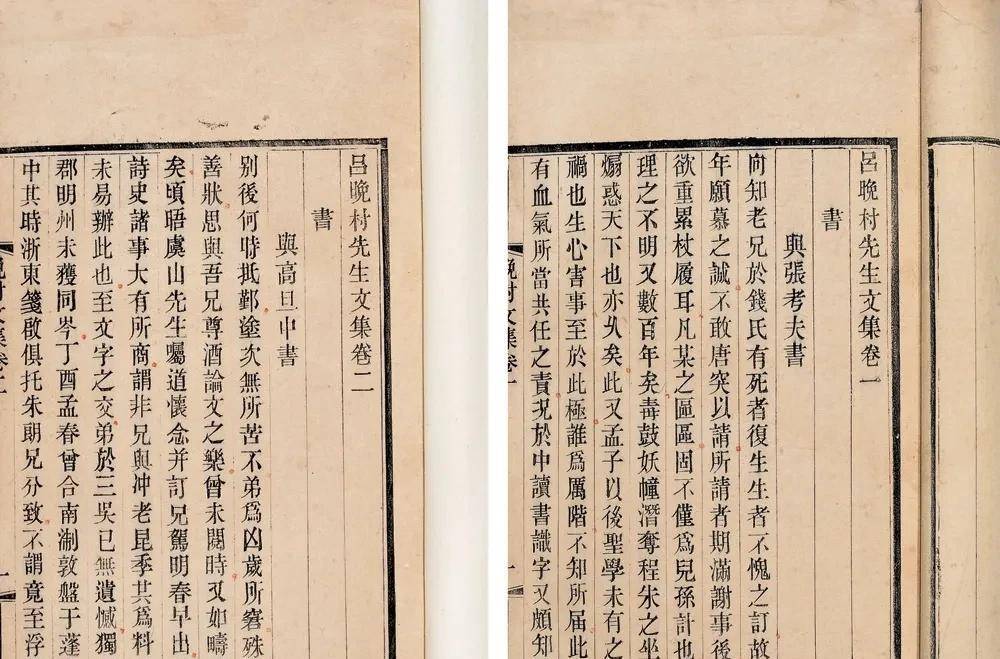 呂晚村先生文集卷一
書
與張考夫書
向知老兄於錢氏有死者復生生者不愧之訂故
年願慕之誠不敢唐突以請所請者期滿謝事後
欲重累杖履耳凡某之區區固不僅爲兒孫計也
理之不明又數百年矣毒鼓妖幢潛奪程朱之坐
煽惑天下也亦久矣此又孟子以後聖學未有之
禍也生心害事至於此極誰爲厲階不知所届此
有血氣所當共任之責況於中讀書識字又頗知
晚村文集卷一
呂晚村先生文集卷二
書
與高旦中書
别後何時抵鄞塗次無所苦不弟爲凶歲所窘殊
善狀思與吾兄尊酒論文之樂曾未閱時又如疇
矣頃晤虞山先生屬道懷念并訂兄駕明春早出
詩史諸事大有所商謂非兄與冲老昆季其爲料
未易辦此也至文字之交弟於三吳已無遺憾獨
郡明州未獲同岑丁酉孟春曾合南淛敦盤于蓬
中其時浙東箋啟俱托朱朗兄分致不謂竟至浮
晚村文集卷二